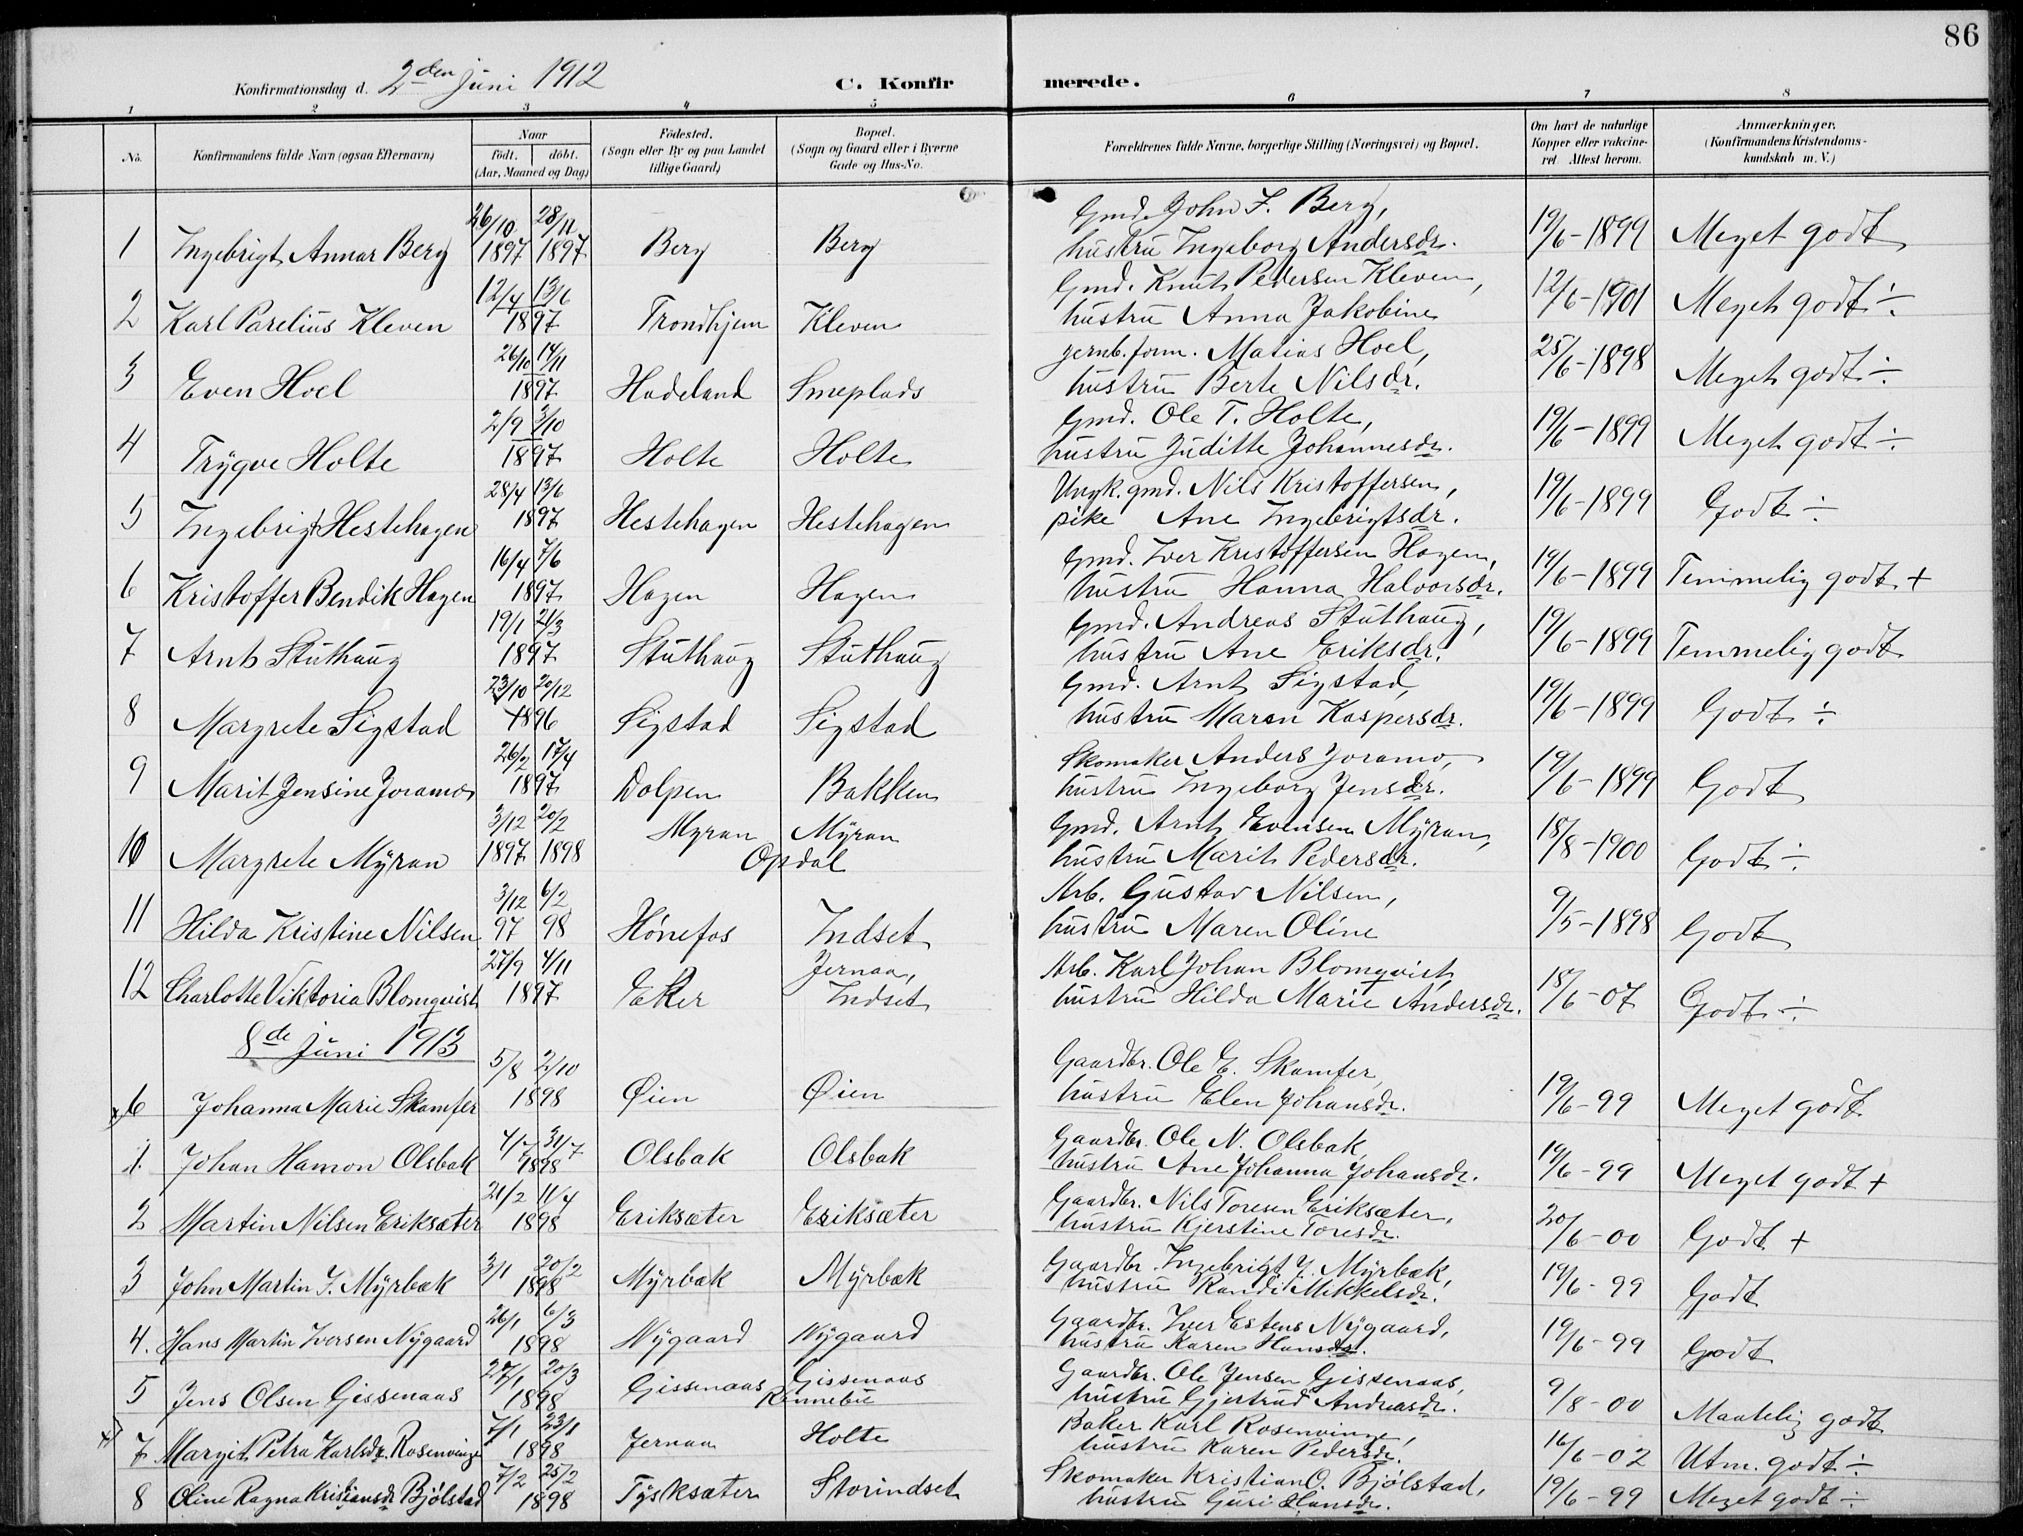 86
Konfirmationsdag d. 2den Juni 1912
C. Konfirmerede.
1 2 3 4 5 6 7 8
No. Konfirmandens fulde Navn (ogsaa Efternavn) Naar født. døbt. (Aar, Maaned og Dag) Fødested. (Sogn eller By og paa Landet tillige Gaard) Bopæl. (Sogn og Gaard eller i Byerne Gade og Hus-No. Forældrenes fulde Navne, borgerlige Stilling (Næringsvei) og Bopæl. Om havt de naturlige Kopper eller vakcineret Attest herom. Anmærkninger. (Konfirmandens Kristendomskundskab m. V.)
1 Ingebrigt Annar Berg 26/10 1897 28/11 1897 Berg Berg Gmd. John I. Berg, hustru Ingeborg Andersdr. 19/6-1899 Meget godt
2 Karl Parelius Kleven 12/4 13/6 1897 Trondhjem Kleven Gmd. Knut Pedersen Kleven, hustru Anna Jakobine 12/6-1901 Meget godt ÷
3 Even Hoel 26/10 14/11 1897 Hadeland Smeplads jernb.form. Matias Hoel, hustru Berte Nilsdr. 25/6-1898 Meget godt ÷
4 Trygve Holte 2/9 3/10 1897 Holte Holte Gmd. Ole T. Holte, hustru Juditte Johannesdr. 19/6-1899 Meget godt ÷
5 Ingebrigt Hestehagen 28/4 13/6 1897 Hestehagen Hestehagen Ungk. gmd. Nils Kristoffersen, pike Ane Ingebrigtsdr. 19/6-1899 Godt ÷
6 Kristoffer Bendik Hagen 16/4 7/6 1897 Hagen Hagen Gmd. Iver Kristoffersen Hagen, hustru Hanna Halvorsdr. 19/6-1899 Temmelig godt +
7 Arnt Stuthaug 19/1 21/3 1897 Stuthaug Stuthaug Gmd. Andreas Stuthaug, hustru Ane Eriksdr. 19/6-1899 Temmelig godt
8 Margrete Sigstad 23/10 20/12 1896 Sigstad Sigstad Gmd. Arnt Sigstad, hustru Maren Kaspersdr. 19/6-1899 Godt ÷
9 Marit Jensine Joramo 26/2 17/4 1897 Dolpen Bakken Skomaker Anders Joramo, hustru Ingeborg Jensdr. 19/6-1899 Godt
10 Margrete Myran 3/12 1897 20/2 1898 Myran Myran Opdal Gmd. Arnt Evensen Myran, hustru Marit Pedersdr. 18/8-1900 Godt ÷
11 Hilda Kristine Nilsen 3/12 97 6/2 98 Hønefos Indset Arb. Gustav Nilsen, hustru Maren Oline 9/5-1898 Godt
12 Charlotte Viktoria Blomqvist 27/9 4/11 1897 Eker Jernaa, Indset Arb. Karl Johan Blomqvist, hustru Hilda Marie Andersdr. 18/6-07 Godt ÷
8de Juni 1913
x6 Johanna Marie Skamfer 5/8 2/10 1898 Øien Øien Gaardbr. Ole E. Skamfer, hustru Elen Johansdr. 19/6-99 Meget godt
1. Johan Hamon Olsbak 4/7 31/7 1898 Olsbak Olsbak Gaardbr. Ole N. Olsbak, hustru Ane Johanna Johansdr. 19/6-99 Meget godt +
2 Martin Nilsen Eriksæter 21/2 11/4 1898 Eriksæter Eriksæter Gaardbr. Nils Toresen Eriksæter, hustru Kjerstine Toresdr. 20/6-00 Godt +
3 John Martin I. Myrbæk 3/1 20/2 1898 Myrbæk Myrbæk Gaardbr. Ingebrigt J. Myrbæk, hustru Randi Mikkelsdr. 19/6-99 Godt
4. Hans Martin Iversen Nygaard 26/1 6/3 1898 Nygaard Nygaard Gaardbr. Iver Estens Nygaard, hustru Karen Hansdr. 19/6-99 Godt
5 Jens Olsen Gissenaas 27/1 20/3 1898 Gissenaas Gissenaas Rennebu Gaardbr. Ole Jensen Gissenaas, hustru Gjertrud Andreasdr. 9/8-00 Maatelig godt
7 Margit Petra Karlsdr. Rosenvinge 7/1 23/1 1898 Jernaa Holte Baker Karl Rosenvinge, hustru Karen Pedersdr. 16/6-02 Utm. godt ÷
8 Oline Ragna Kristiansdr Bjølstad 7/2 25/2 1898 Tysksæter Storindset Skomaker Kristian O. Bjølstad, hustru Guri Hansdr. 19/6-99 Meget godt ÷